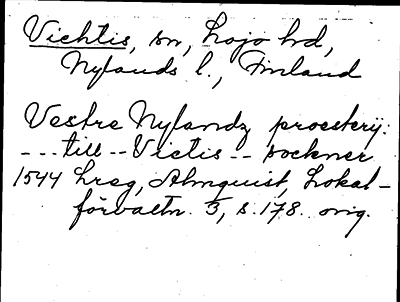 Vichtis, sn, Lojo hd,
Nylands l., Finland
Vestre Nylandz proesterij:
--- till -- Victis -- sockner
1544 Lreg, Almquist, Lokal-
förvaltn. 3, s. 178. orig.